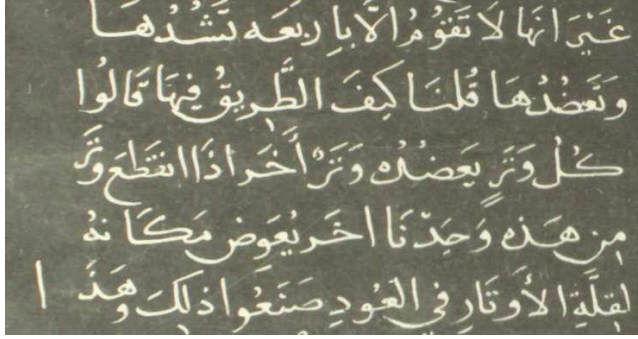 غَيْرَ انَهَا لَا تَقُوْمُ الَّا بِارْبَعَه تَشُدُّهَا
وَتَعْضُدُهَا قُلْنَا كَيفَ الطَّرِيقُ فِيهَا قَالُوا
كُلُ وَتَرٍ يَعضدُه وَتَرٌ أَخَر اذَا انقَطَعَ وَتَرٌ
مِن هَذه وَجَدْنَا اخَر يُعَوض مَكَانهُ
لِقلَّةِ الأَوتَارِ في العُودِ صَنَعُوا ذلِكَ وهَذَا